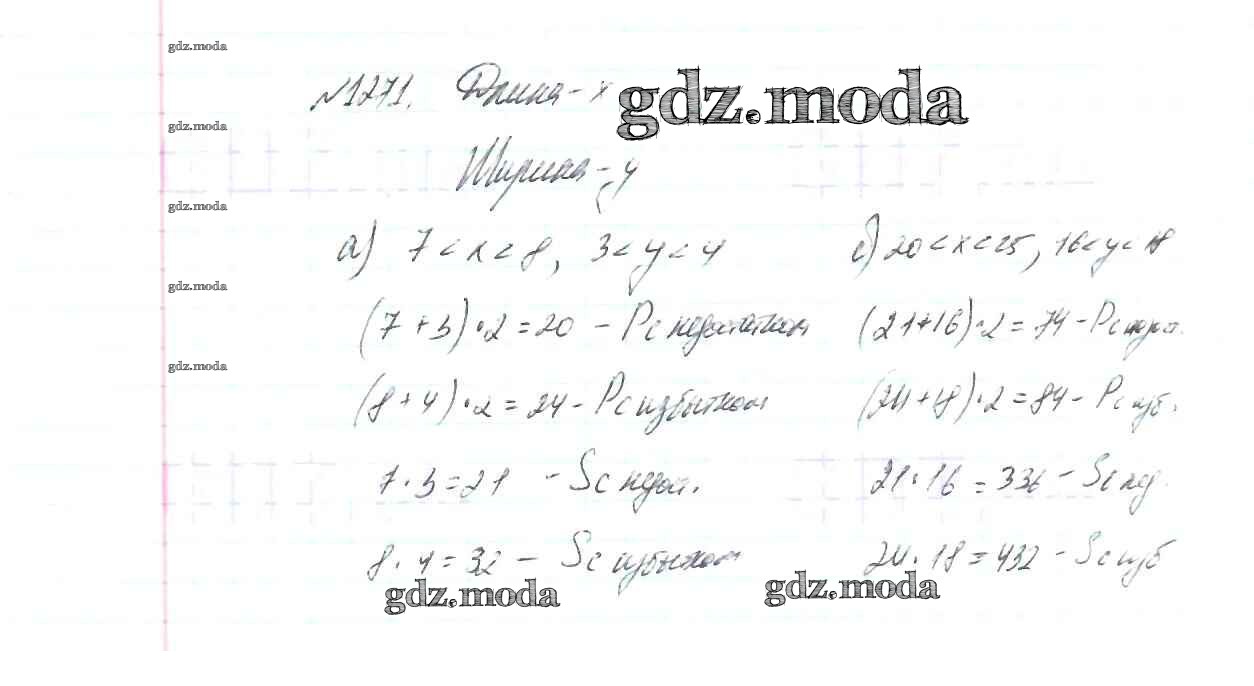 gdz.moda
№1271. Длина - x
gdz.moda
gdz.moda
Ширина - y
gdz.moda
а) 7 < x < 8, 3 < y < 4
(7 + 3) · 2 = 20 - P с недостатком
(8 + 4) · 2 = 24 - P с избытком
7 · 3 = 21 - S с недост.
8 · 4 = 32 - S с избытком
gdz.moda
б) 20 < x < 25, 16 < y < 18
(21+16) · 2 = 74 - P с
(24+18) · 2 = 84 - P с изб.
21 · 16 = 336 - S с нед.
24 · 18 = 432 - S с изб
gdz.moda
gdz.moda
gdz.moda